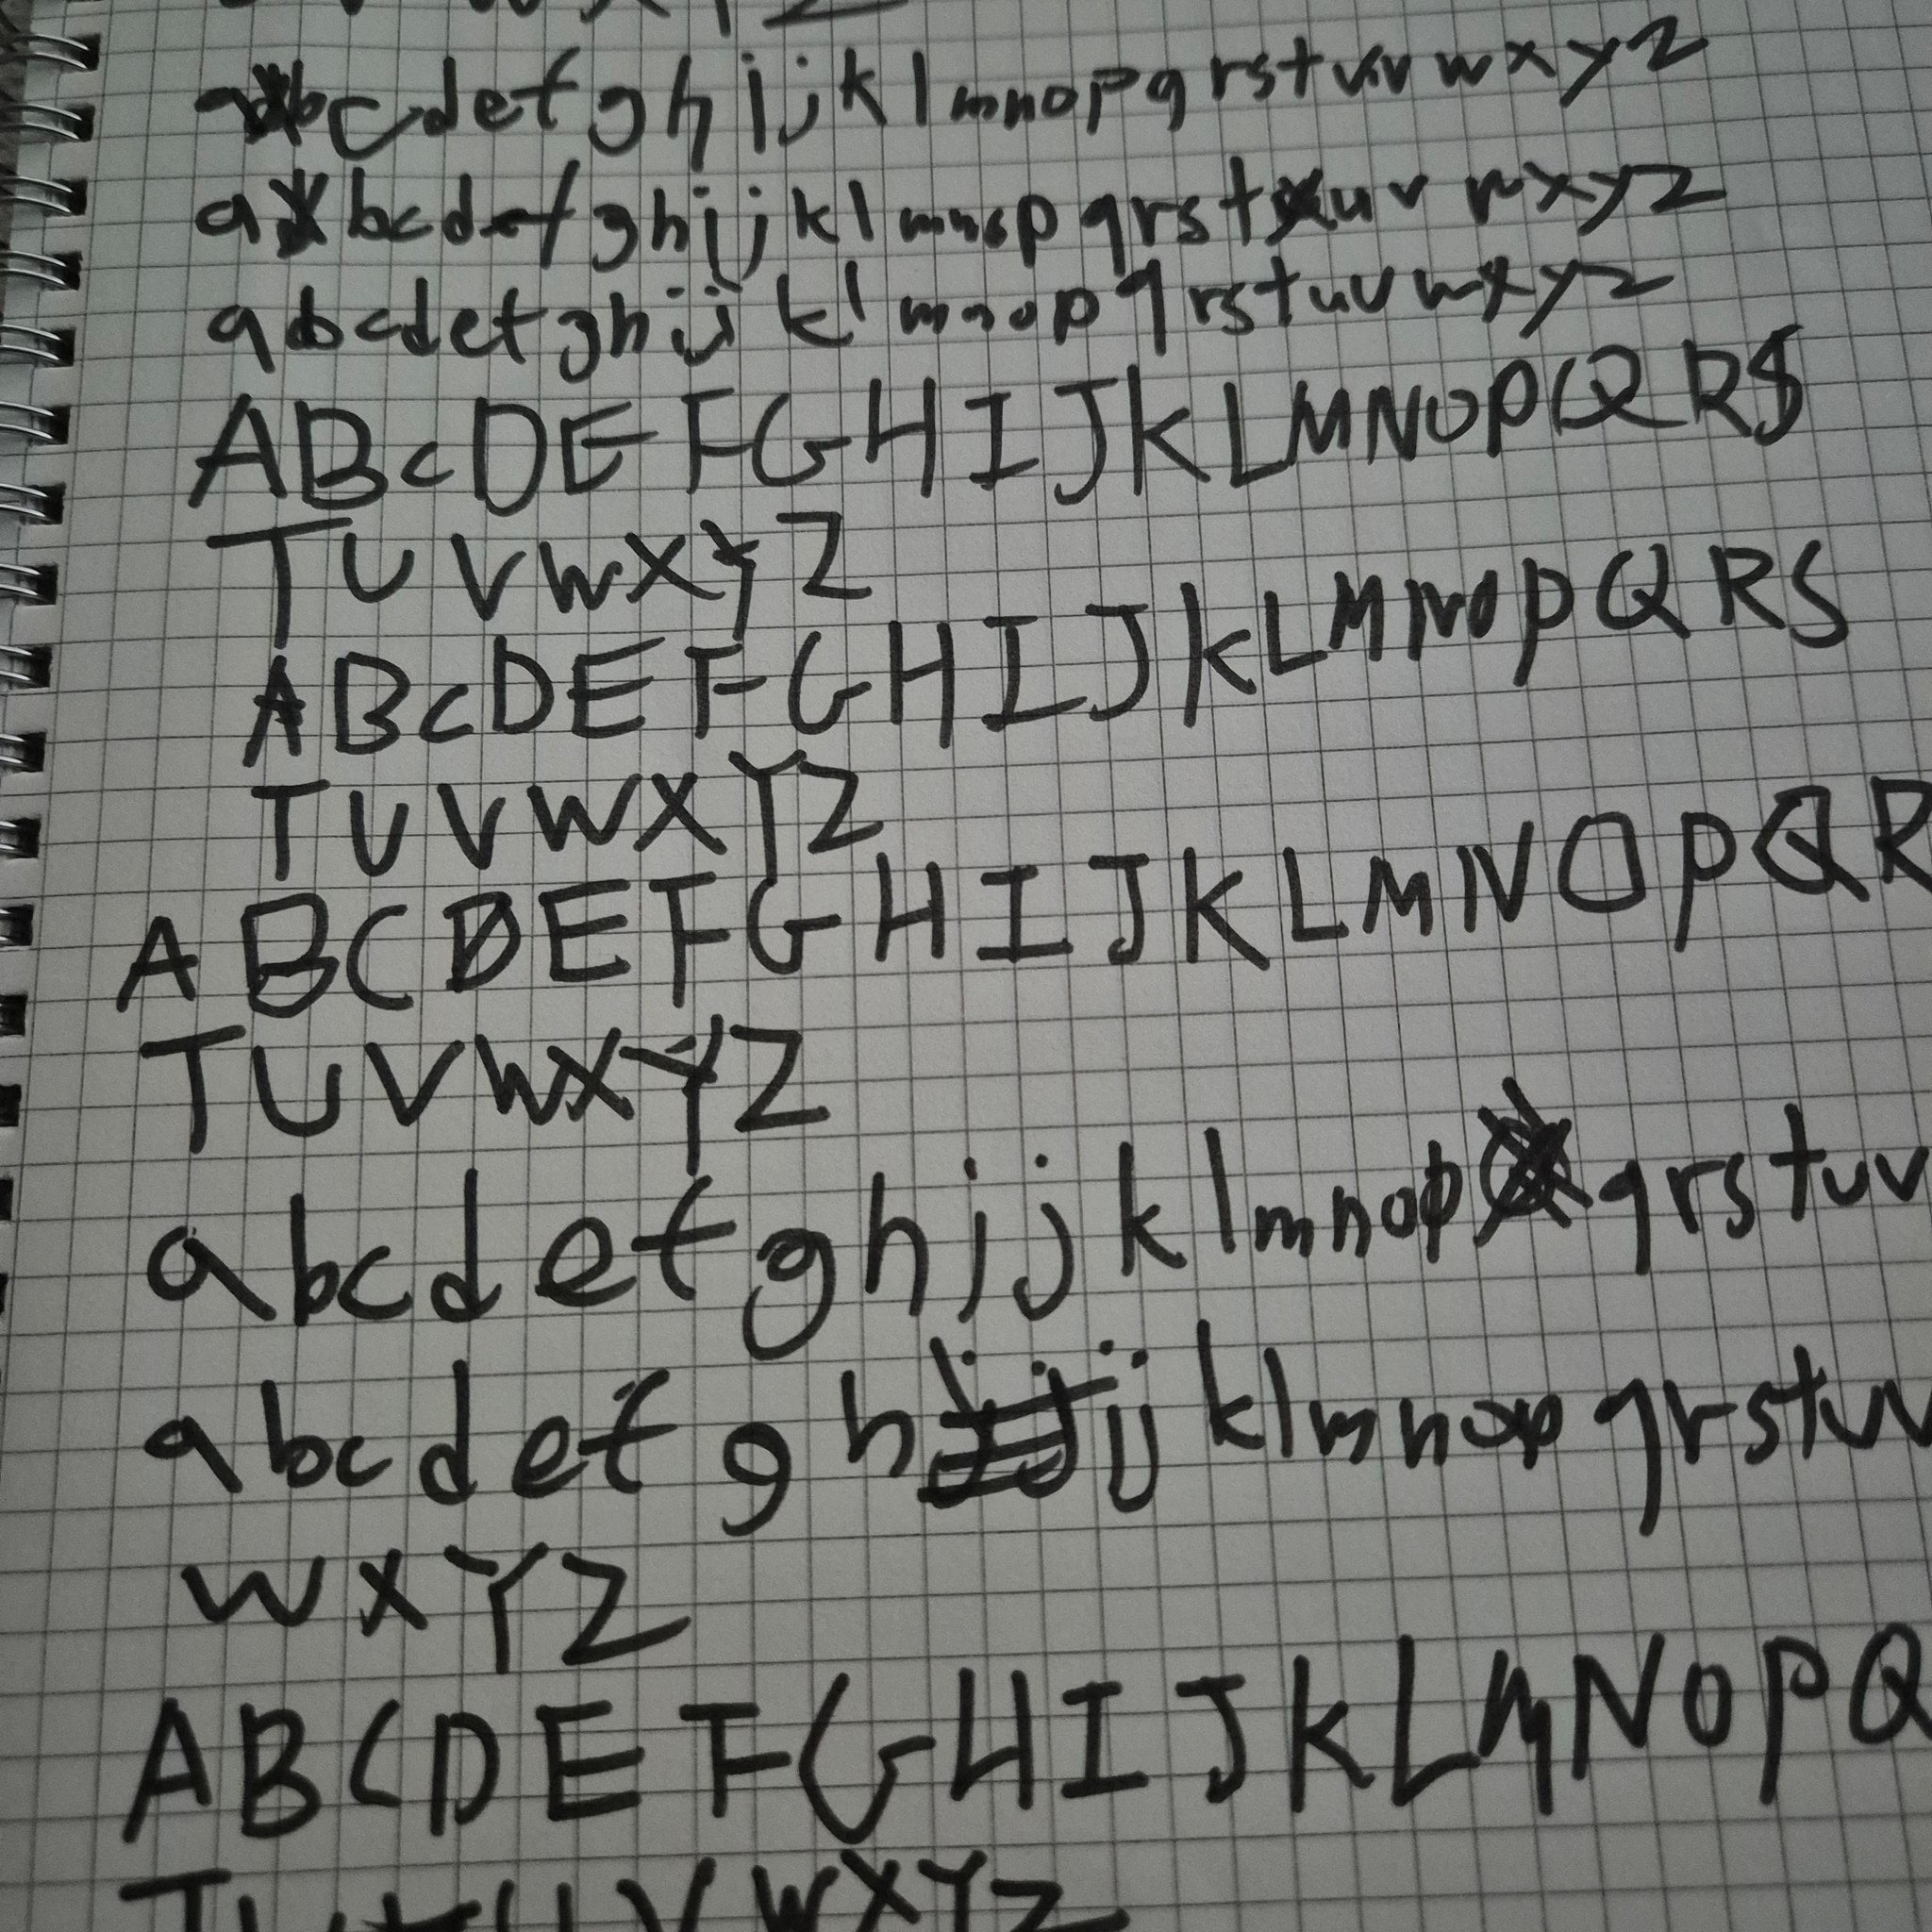 V W X Y Z
abcdefghijklmnopqrstuvwxyz
abcdefghijklmnopqrstuvwxyz
abcdefghijklmnopqrstuvwxyz
ABCDEFGHIJKLMNOPQRS
TUVWXYZ
ABCDEFGHIJKLMNOPQRS
TUVWXYZ
ABCDEFGHIJKLMNOPQR
TUVWXYZ
abcdefghijklmnopqrstuv
abcdefghijklmnopqrstuv
wxYZ
ABCDEFGHIJKLMNOPQ
TUVWXYZ